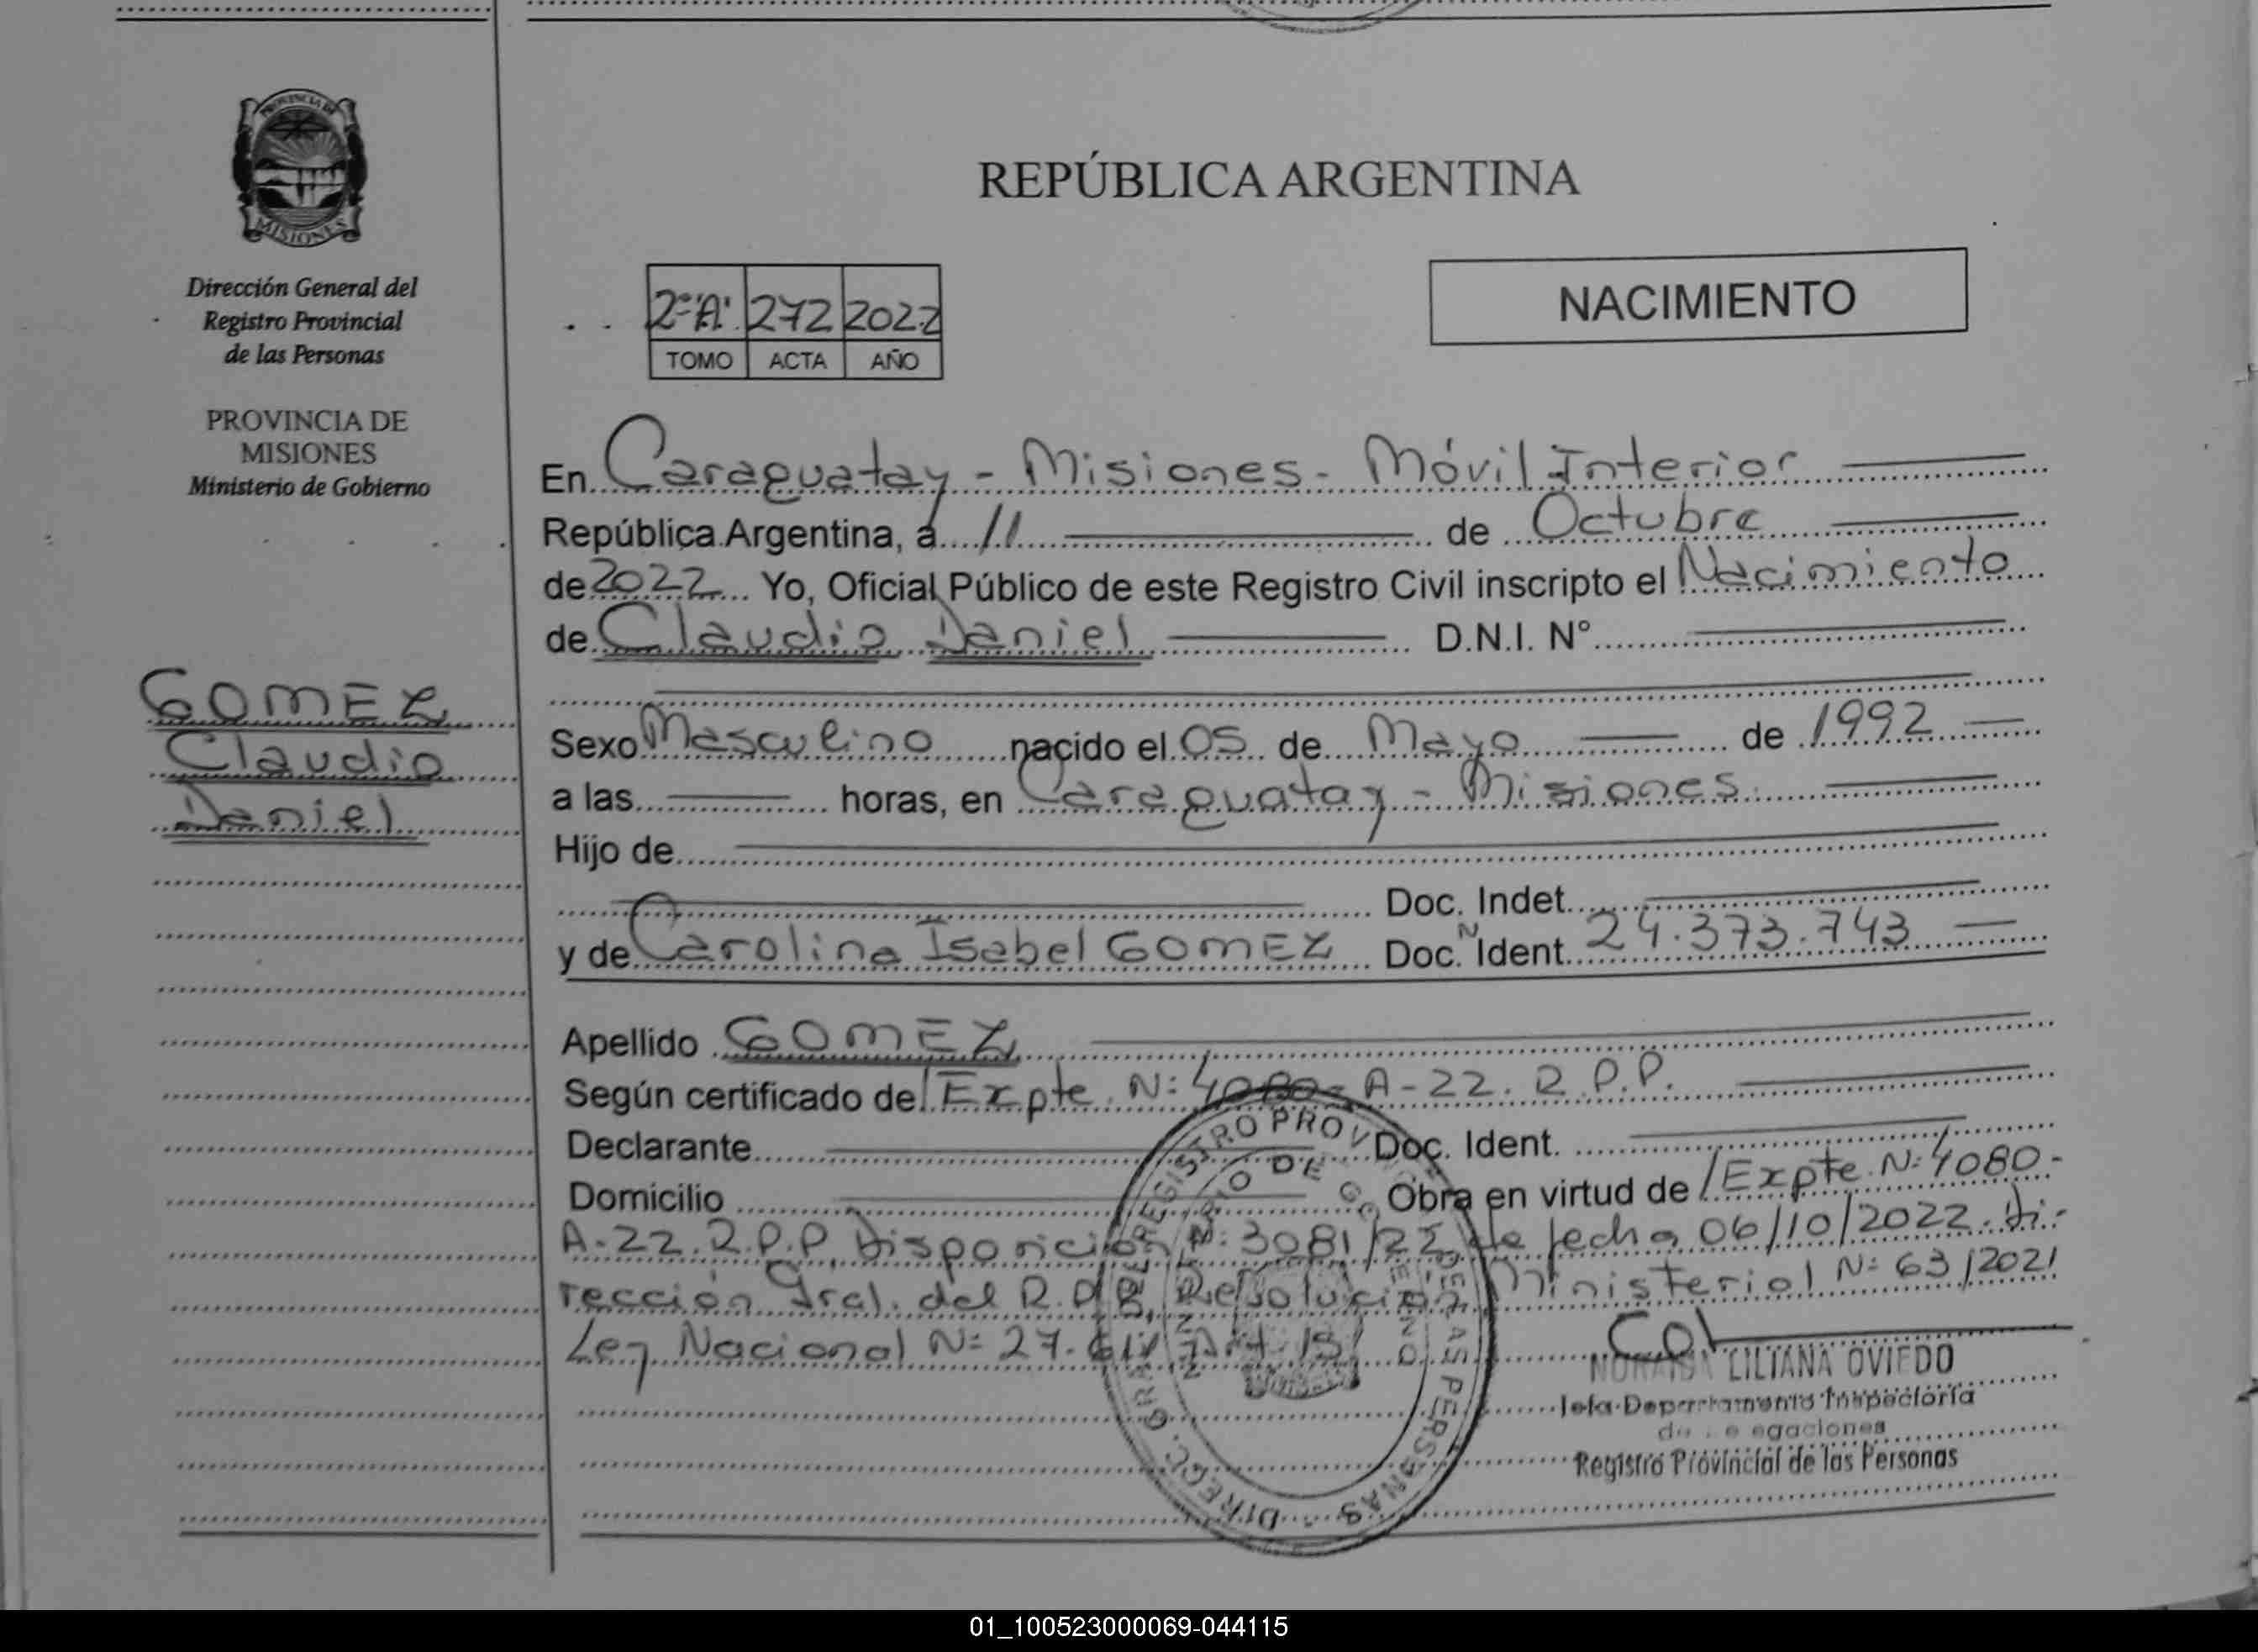 PROVINCIA DE
MISIONES
Dirección General del
Registro Provincial
de las Personas
PROVINCIA DE
MISIONES
Ministerio de Gobierno
GOMEZ
Claudio
Daniel
REPÚBLICA ARGENTINA
2º "A" 272 2022
TOMO ACTA AÑO
NACIMIENTO
En Caraguatay - Misiones - Móvil Interior
República Argentina, a 11 de Octubre
de 2022 Yo, Oficial Público de este Registro Civil inscripto el Nacimiento
de Claudio Daniel D.N.I. Nº
Sexo Masculino nacido el 05 de Mayo de 1992
a las horas, en Caraguatay - Misiones
Hijo de
Doc. Indet.
y de Carolina Isabel GOMEZ Doc. Ident. 24.373.743
Apellido GOMEZ
Según certificado de Expte. Nº 4080-A-22. R.P.P.
Declarante Doc. Ident.
Domicilio Obra en virtud de Expte. Nº 4080-
A-22. R.P.P. Disposición Nº 3081/22 de fecha 06/10/2022. Di-
rección Gral. del R.P.P. Resolución Ministerial Nº 63/2021
Ley Nacional Nº 27. Art. 15
LILIANA OVIEDO
Jefa Departamento Inspectoría
Registro Provincial de las Personas
DIREC. GRAL. DE REGISTRO PROV. DE LAS PERSONAS
01_100523000069-044115